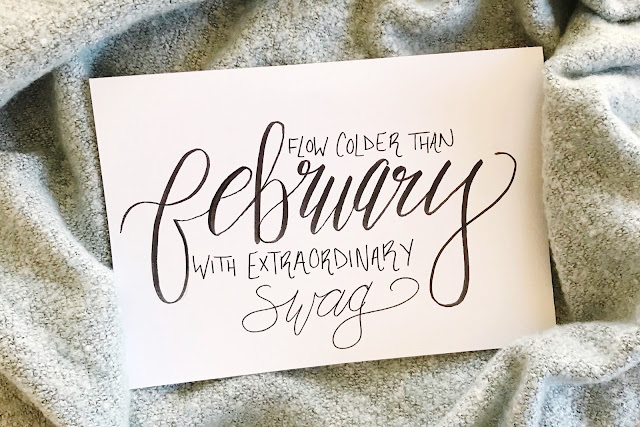 FLOW COLDER THAN
february
WITH EXTRAORDINARY
swag